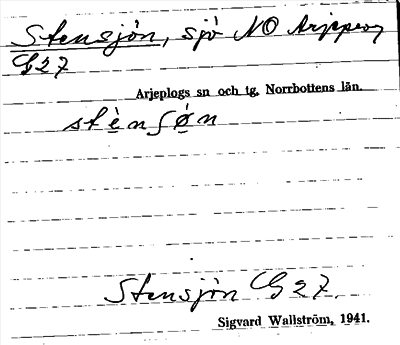 Stensjön, sjö NO Arjeplog
G27
Arjeplogs sn och tg, Norrbottens län.
stènʃøn
Stensjön G27.
Sigvard Wallström, 1941.